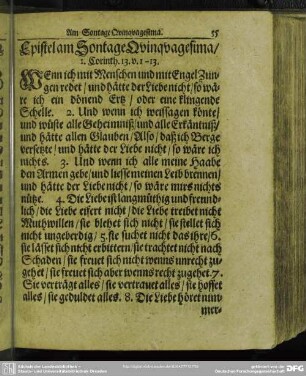 Am Sontage Qvinqvagesima. 55
Epistel am Sontage Qvinqvagesima/
1. Corinth. 13. v. 1-13.
WEnn ich mit Menschen und mit Engel Zun-
gen redet/ und hätte der Liebe nicht/ so wä-
re ich ein dönend Ertz/ oder eine klingende
Schelle. 2. Und wenn ich weissagen könte/
und wüste alle Geheimniß/ und alle Erkäntniß/
und hätte allen Glauben/ Also/ daß ich Berge
versetzte/ und hätte der Liebe nicht/ so wäre ich
nichts. 3. Und wenn ich alle meine Haabe
den Armen gebe/ und liesse meinen Leib brennen/
und hätte der Liebe nicht/ so wäre mirs nichts
nütze. 4. Die Liebe ist langmüthig und freund-
lich/ die Liebe eifert nicht/ die Liebe treibet nicht
Muthwillen/ sie blehet sich nicht/ sie stellet sich
nicht ungeberdig/ 5. sie suchet nicht das ihre/ 6.
sie lässet sich nicht erbittern/ sie trachtet nicht nach
Schaden/ sie freuet sich nicht wenns unrecht zu-
gehet/ sie freuet sich aber wenns recht zugehet. 7.
Sie verträgt alles/ sie vertrauet alles/ sie hoffet
alles/ sie geduldet alles. 8. Die Liebe höret nim-
mer-